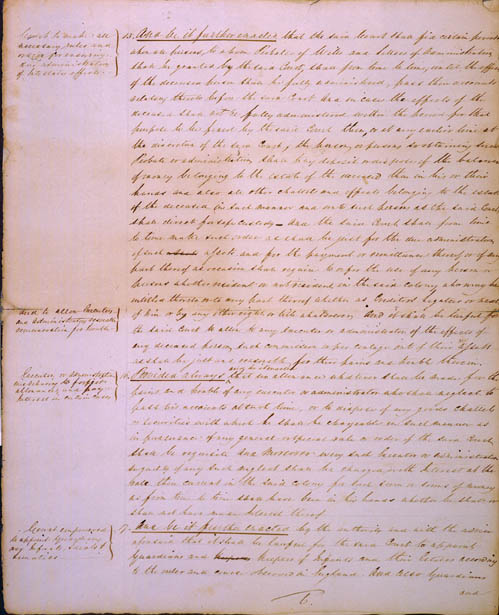 Court to make all
necessary rules and
orders for ensuring
due administration
of Intestates effects.
15. And be it further enacted that the said Court shall fix certain periods
when all persons, to whom Probate of Wills and Letters of Administration
shall be granted by the said Court, shall from time to time, until the effects
of the deceased person shall be fully administered, pass their accounts
relating thereto before the said Court And in case the effects of the
deceased shall not be fully administered within the period for that
purpose to be fixed by the said Court then, or at any earlier time at
the discretion of the said Court, the person or persons so obtaining such
Probate or administration shall pay deposit or dispose of the balance
of money belonging to the estate of the deceased then in his or their
hands and also all other chattels and effects belonging to the estate
of the deceased in such manner and unto such person as the said Court
shall direct for safe custody And the said Court shall from time
to time make such order as shall be just for the due administration
of such assets and for the payment or remittance thereof or of any
part thereof as occasion shall require to or for the use of any person or
persons whether resident or not resident in the said Colony who may be
entitled thereto or to any part thereof whether as Creditors legatees or next
of Kin or by any other right or title whatsoever
And to allow Executors
and administrators reasonable
remuneration for trouble
And it shall be lawful for
the said Court to allow to any executor or administrator of the effects of
any deceased person such commission or per centage out of their assets
as shall be just and reasonable for their pains and trouble therein.
Executor or administrator
misbehaving to forfeit
allowance and to pay
Interest in certain cases
16. Provided always that no allowance whatever shall be made for the
pains and trouble of any executor or administrator who shall neglect to
pass his accounts at such time, or to dispose of any goods chattels
or securities with which he shall be chargeable in such manner as
in pursuance of any general or special rule or order of the said Court
shall be requisite And Moreover every such Executor or administrator
so guilty of any such neglect shall be charged with Interest at the
rate then current in the said Colony for such sum or sums of money
as from time to time shall have been in his hands whether he shall or
shall not have made Interest thereof
Court empowered
to appoint Guardians
17. And be it further enacted by the authority and with the advice
aforesaid that it shall be lawful for the said Court to appoint
Guardians and keepers of Infants and their Estates according
to the order and course observed in England And also Guardians
and